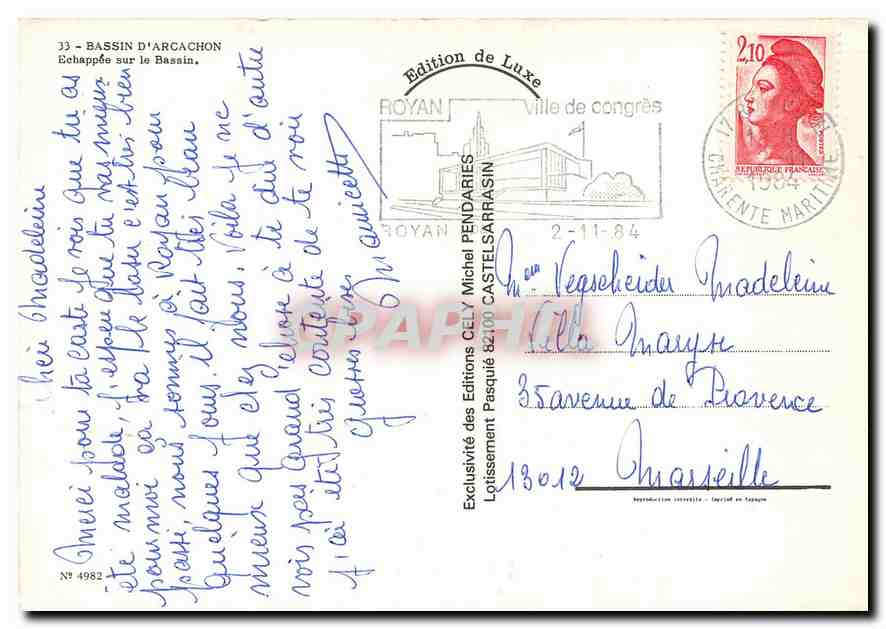 33 - BASSIN D'ARCACHON
Echappée sur le Bassin.
Edition de Luxe
ROYAN Ville de congrès
ROYAN 2-11-84
2,10
POSTES
REPUBLIQUE FRANÇAISE
17 1984
CHARENTE MARITIME
Chère Madeleine
Merci pour ta carte je vois que tu as
été malade, j'espère que tu vas mieux
pour moi ça va le bassin c'est très bien
passé, nous sommes à Royan pour
quelques jours. il fait très beau
mieux que chez nous. Voila je ne
vois pas grand chose à te dire d'autre
j'ai été très contente de te voir
Grosses bises
Mauricette
Exclusivité des Editions CELY Michel PENDARIES
Lotissement Pasquié 82100 CASTELSARRASIN
Mme Vegscheider Madeleine
Villa Maryse
35 avenue de Provence
13012 Marseille
Reproduction interdite - Imprimé en Espagne
Nº 4982
CPAPHIL